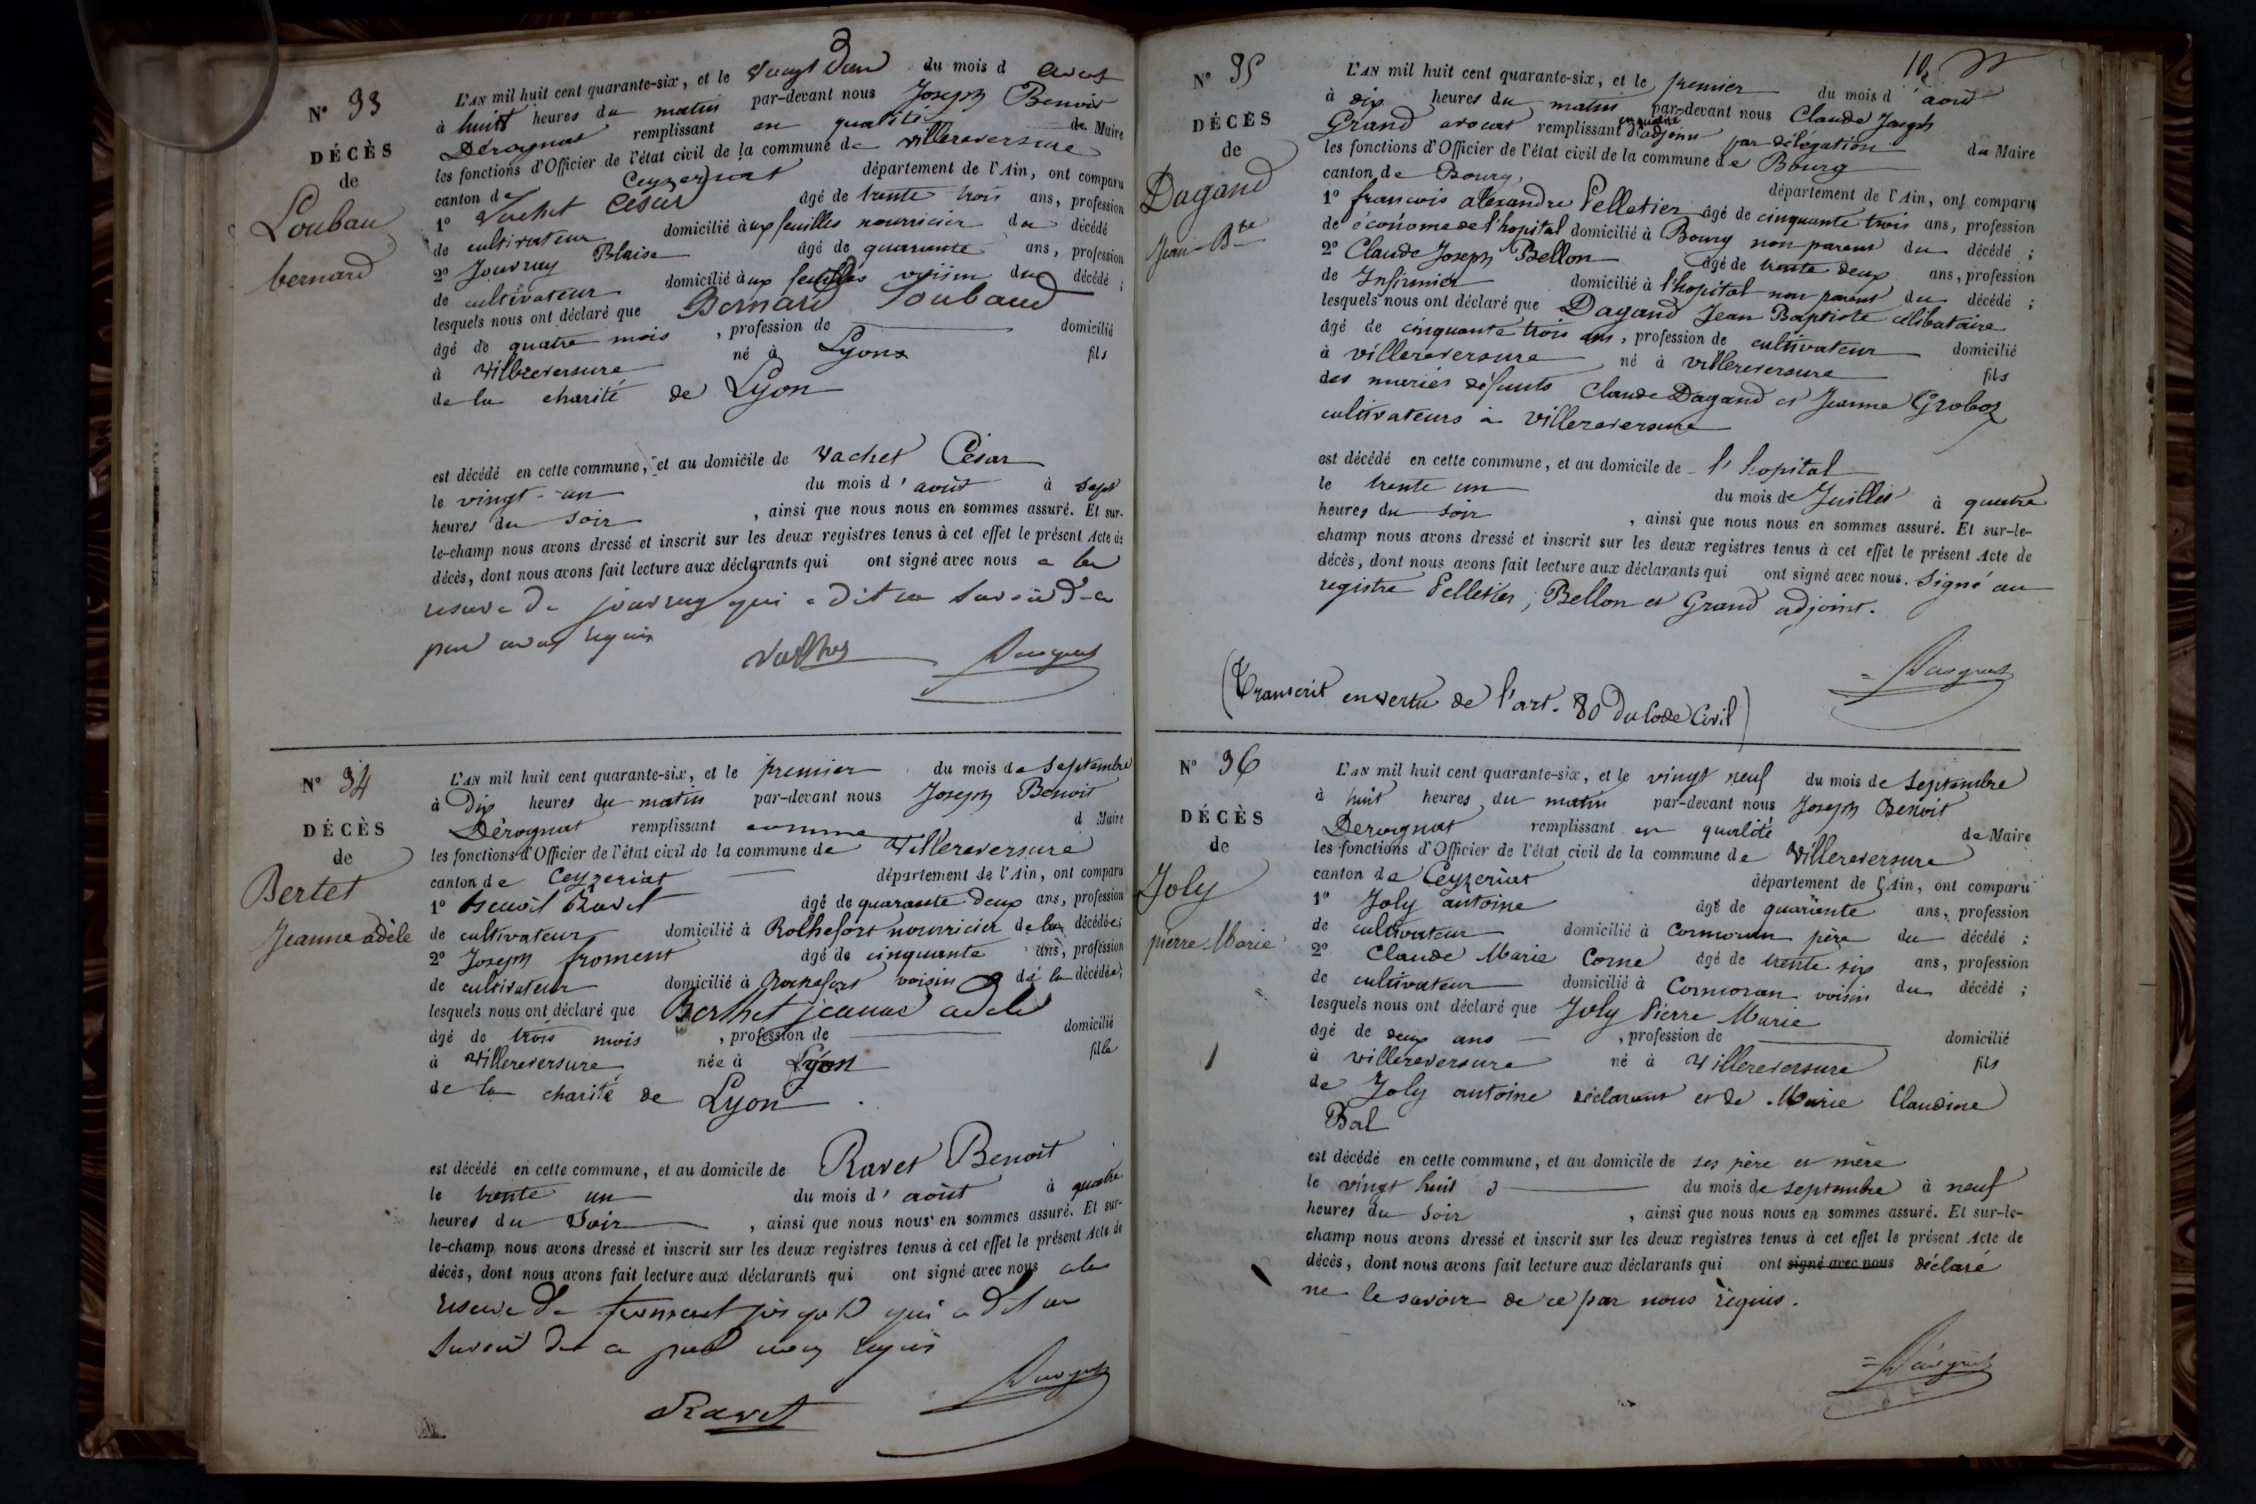 N° 33
DÉCÈS
de
Loubau
bernard
L'AN mil huit cent quarante-six, et le vingt deux du mois d août
à huit heures du matin par-devant nous Joseph Benoit
Dérognat remplissant en qualité de Maire
les fonctions d'Officier de l'état civil de la commune de villereversure
canton de Ceyzeriat département de l'Ain, ont comparu
1° Vachet César âgé de trente trois ans, profession
de cultivateur domicilié à aux feuilles nourricier du décédé
2° Jouvray Blaise âgé de quarante ans, profession
de cultivateur domicilié à aux feuilles voisin du décédé ;
lesquels nous ont déclaré que Bernard Loubaud
âgé de quatre mois , profession de domicilié
à villereversure né à Lyon fils
de la charité de Lyon
est décédé en cette commune, et au domicile de Vachet César
le vingt-un du mois d'août à sept
heures du soir , ainsi que nous nous en sommes assuré. Et sur-
le-champ nous avons dressé et inscrit sur les deux registres tenus à cet effet le présent Acte de
décès, dont nous avons fait lecture aux déclarants qui ont signé avec nous a la
reserve de jouvray qui a dit ne savoir de ce
par nous requis
Vachet Dérognat
N° 34
DÉCÈS
de
Bertet
Jeanne adèle
L'AN mil huit cent quarante-six, et le premier du mois de Septembre
à Dix heures du matin par-devant nous Joseph Benoit
Dérognat remplissant comme d Maire
les fonctions d'Officier de l'état civil de la commune de Villereversure
canton de Ceyzeriat département de l'Ain, ont comparu
1° Benoit Ravet âgé de quarante deux ans, profession
de cultivateur domicilié à Rochefort nourricier de la décédée;
2° Joseph froment âgé de cinquante ans, profession
de cultivateur domicilié à Rochefort voisin de la décédée;
lesquels nous ont déclaré que Berthet jeanne adele
âgé de trois mois , profession de domicilié
à Villereversure née à Lyon fille
de la charité de Lyon
est décédé en cette commune, et au domicile de Ravet Benoit
le trente un du mois d'août à quatre
heures du Soir , ainsi que nous nous en sommes assuré. Et sur-
le-champ nous avons dressé et inscrit sur les deux registres tenus à cet effet le présent Acte de
décès, dont nous avons fait lecture aux déclarants qui ont signé avec nous a la
reserve de froment joseph qui a dit ne
savoir de ce par nous requis
Ravet Dérognat
N° 35
DÉCÈS
de
Dagand
Jean-Bte
L'AN mil huit cent quarante-six, et le premier du mois d'août
à dix heures du matin par-devant nous Claude Joseph
Grand avocat remplissant en qualité d'adjoint par délégation du Maire
les fonctions d'Officier de l'état civil de la commune de Bourg
canton de Bourg, département de l'Ain, ont comparu
1° francois alexandre Pelletier âgé de cinquante trois ans, profession
de économe de l'hopital domicilié à Bourg non parent du décédé ;
2° Claude Joseph Bellon âgé de trente deux ans, profession
de Infirmier domicilié à l'hopital non parent du décédé ;
lesquels nous ont déclaré que Dagand Jean Baptiste célibataire
âgé de cinquante trois ans, profession de cultivateur domicilié
à villereversure né à villereversure fils
des mariés défunts Claude Dagand et Jeanne Groboz
cultivateurs à villereversure
est décédé en cette commune, et au domicile de l'hopital
le trente un du mois de Juillet à quatre
heures du soir , ainsi que nous nous en sommes assuré. Et sur-le-
champ nous avons dressé et inscrit sur les deux registres tenus à cet effet le présent Acte de
décès, dont nous avons fait lecture aux déclarants qui ont signé avec nous. Signé au
registre Pelletier, Bellon et Grand adjoint.
Dérognat
(Transcrit en vertu de l'art. 80 du Code Civil)
N° 36
DÉCÈS
de
Joly
pierre Marie
L'AN mil huit cent quarante-six, et le vingt neuf du mois de Septembre
à huit heures du matin par-devant nous Joseph Benoit
Derognat remplissant en qualité de Maire
les fonctions d'Officier de l'état civil de la commune de Villereversure
canton de Ceyzeriat département de l'Ain, ont comparu
1° Joly antoine âgé de quarante ans, profession
de cultivateur domicilié à Cormoran père du décédé ;
2° Claude Marie Corne âgé de trente six ans, profession
de cultivateur domicilié à Cormoran voisin du décédé ;
lesquels nous ont déclaré que Joly Pierre Marie
âgé de deux ans , profession de domicilié
à villereversure né à Villereversure fils
de Joly antoine déclarant et de Marie Claudine
Bal
est décédé en cette commune, et au domicile de ses père et mère
le vingt huit du mois de septembre à neuf
heures du soir , ainsi que nous nous en sommes assuré. Et sur-le-
champ nous avons dressé et inscrit sur les deux registres tenus à cet effet le présent Acte de
décès, dont nous avons fait lecture aux déclarants qui ont signé avec nous déclaré
ne le savoir de ce par nous requis.
Dérognat